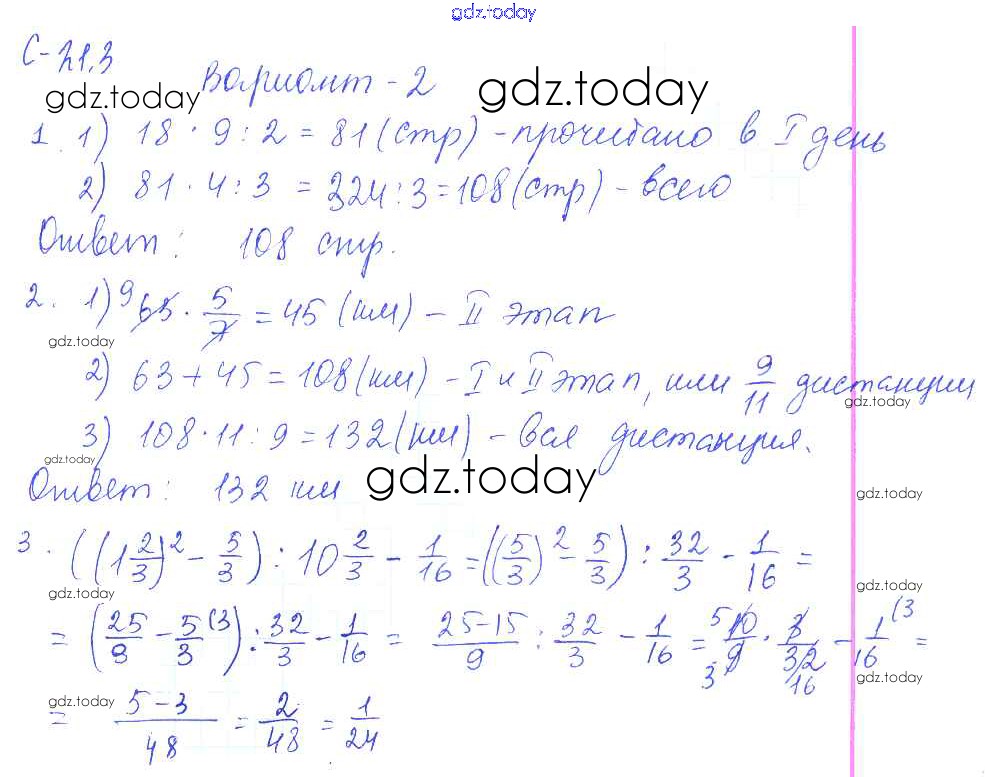 gdz.today
С-21.3
Вариант - 2
gdz.today gdz.today
1. 1) 18 · 9 : 2 = 81 (стр) - прочитано в I день
2) 81 · 4 : 3 = 324 : 3 = 108 (стр) - всего
Ответ: 108 стр.
2. 1) 9 63 · 5/7 = 45 (км) - II этап
gdz.today
2) 63 + 45 = 108 (км) - I и II этап, или 9/11 дистанции
gdz.today
3) 108 · 11 : 9 = 132 (км) - вся дистанция.
gdz.today
Ответ: 132 км
gdz.today
gdz.today
3. ((1 2/3)² - 5/3) : 10 2/3 - 1/16 = ((5/3)² - 5/3) : 32/3 - 1/16 =
gdz.today gdz.today
= (25/9 - 5/3 (3) : 32/3 - 1/16 = 25-15/9 : 32/3 - 1/16 = 5 10/9 3 · 3/32 16 - 1/16 (3 =
gdz.today gdz.today
= 5-3/48 = 2/48 = 1/24